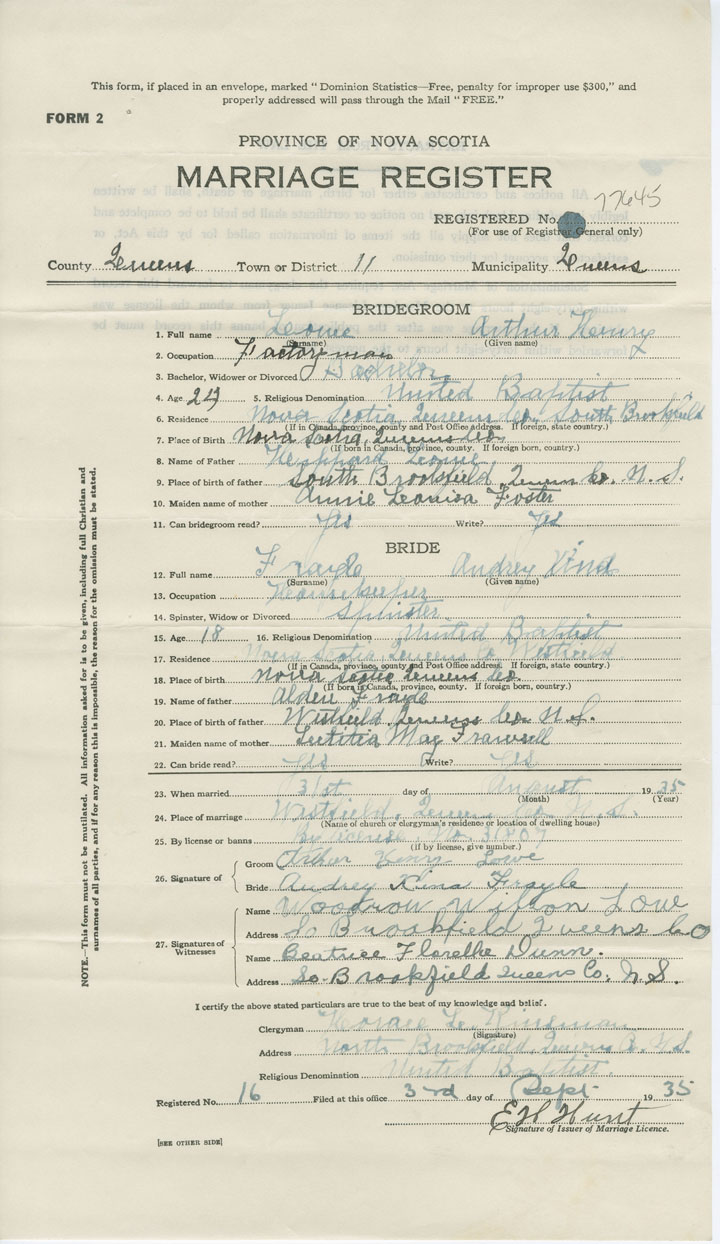 This form, if placed in an envelope, marked "Dominion Statistics—Free, penalty for improper use $300," and
properly addressed will pass through the Mail "FREE."
FORM 2
PROVINCE OF NOVA SCOTIA
MARRIAGE REGISTER
77645
REGISTERED No.
(For use of Registrar General only)
County Queens Town or District 11 Municipality Queens
BRIDEGROOM
1. Full name Lowe Arthur Henry
(Surname) (Given name)
2. Occupation Factoryman
3. Bachelor, Widower or Divorced Bachelor
4. Age 24 5. Religious Denomination United Baptist
6. Residence Nova Scotia Queens Co. South Brookfield
(If in Canada, province, county and Post Office address. If foreign, state country.)
7. Place of Birth Nova Scotia, Queens Co.
(If born in Canada, province, county. If foreign born, country.)
8. Name of Father Lowe
9. Place of birth of father South Brookfield Queens Co. N.S.
10. Maiden name of mother Annie Louisa Foster
11. Can bridegroom read? Yes Write? Yes
BRIDE
12. Full name Frayle Audrey
(Surname) (Given name)
13. Occupation Housekeeper
14. Spinster, Widow or Divorced Spinster
15. Age 18 16. Religious Denomination United Baptist
17. Residence Nova Scotia Queens Co Westfield
(If in Canada, province, county and Post Office address. If foreign, state country.)
18. Place of birth Nova Scotia Queens Co.
(If born in Canada, province, county. If foreign born, country.)
19. Name of father Alden Frayle
20. Place of birth of father Westfield Queens Co. N.S.
21. Maiden name of mother Letitia May
22. Can bride read? Yes Write? Yes
23. When married 31st day of August 1935
(Month) (Year)
24. Place of marriage Westfield, Queens Co. N.S.
(Name of church or clergyman's residence or location of dwelling house)
25. By license or banns By license No. 31207
(if by license, give number.)
26. Signature of
Groom Arthur Henry Lowe
Bride Audrey Frayle
27. Signatures of Witnesses
Name Woodrow Wilson Lowe
Address So Brookfield Queens Co
Name Beatrice Florelle Dunn.
Address So. Brookfield Queens Co. N.S.
I certify the above stated particulars are true to the best of my knowledge and belief.
Clergyman Horace L. Kinsman
(Signature)
Address North Brookfield, Queens Co. N.S.
Religious Denomination United Baptist
Registered No. 16 Filed at this office 3rd day of Sept 1935
E H Hunt
Signature of Issuer of Marriage Licence.
[SEE OTHER SIDE]
NOTE.—This form must not be mutilated. All information asked for is to be given, including full Christian and
surnames of all parties, and if for any reason this is impossible, the reason for the omission must be stated.